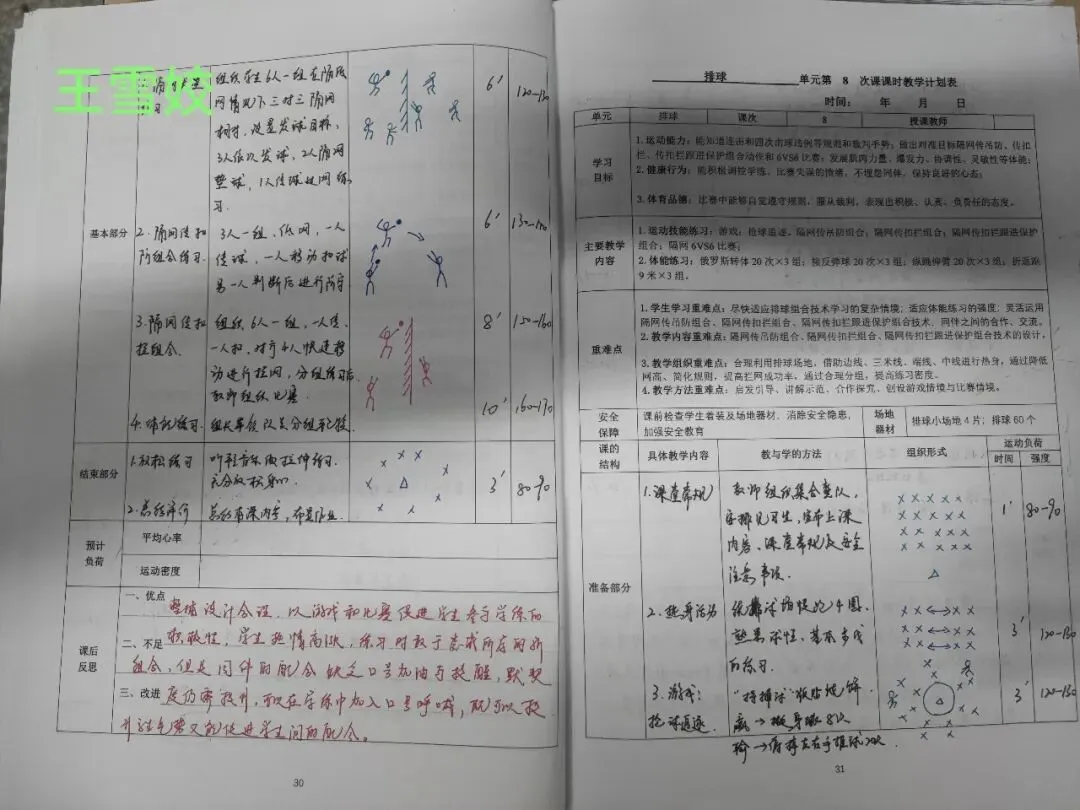 王雪姣
组织学生6人一组在隔网
网情况下三对三隔网
3人依次发球,2人隔网
垫球,1人传球过网练
习.
6′
120-130
基本部分
2.隔网传扣
防组合练习.
3人一组,低网,一人
传球,一人移动扣球
另一人判断后进行防守
6′
130-140
3.隔网传扣
拦组合.
组织6人一组,一人传,
一人扣,对方4人快速移
动进行拦网,分组练习后
教师组织比赛
8′
150-160
4.体能练习.
组长带领队员分组轮换
10′
160-170
结束部分
1.放松练习
听轻音乐做拉伸练习.
充分放松身心.
3′
80-90
2.总结评价
总结本课内容,布置作业.
预计
负荷
平均心率
运动密度
课后
反思
一、优点
整体设计合理,以游戏和比赛促进学生参与学练的
二、不足
积极性,学生热情高涨,练习时敢于尝试所在的新
组合,但是同伴的配合缺乏口号加油与提醒,默契
三、改进
度仍需提升,可以在学练中加入口号呼喊,既可以提
升士气又能促进学生间的配合。
30
排球 单元第 8 次课课时教学计划表
时间: 年 月 日
单元 排球 课次 8 授课教师
学习
目标
1.运动能力:能知道连击和四次击球违例等规则和裁判手势;做出对准目标隔网传吊防、传扣
拦、传扣拦跟进保护组合动作和 6VS6 比赛;发展肌肉力量、爆发力、协调性、灵敏性等体能;
2.健康行为:能积极调控学练、比赛失误的情绪,不埋怨同伴,保持良好的心态;
3.体育品德:比赛中能够自觉遵守规则,服从裁判,表现出积极、认真、负责任的态度。
主要教学
内容
1.运动技能练习:游戏:抢球追逐、隔网传吊防组合;隔网传扣拦组合;隔网传扣拦跟进保护
组合;隔网 6VS6 比赛;
2.体能练习:俄罗斯转体 20 次×3 组;接反弹球 20 次×3 组;纵跳伸臂 20 次×3 组;折返跑
9 米×3 组。
重难点
1.学生学习重难点:尽快适应排球组合技术学习的复杂情境;适应体能练习的强度;灵活运用
隔网传吊防组合、隔网传扣拦组合、隔网传扣拦跟进保护组合技术,同伴之间的合作、交流。
2.教学内容重难点:隔网传吊防组合、隔网传扣拦组合、隔网传扣拦跟进保护组合技术的设计,
3.教学组织重难点:合理利用排球场地,借助边线、三米线、端线、中线进行热身,通过降低
网高、简化规则,提高拦网成功率,通过合理分组,提高练习密度。
4.教学方法重难点:启发引导、讲解示范、合作探究、创设游戏情境与比赛情境。
安全
保障
课前检查学生着装及场地器材,消除安全隐患,
加强安全教育
场地
器材
排球小场地 4 片;排球 60 个
课的
结构
具体教学内容
教与学的方法
组织形式
运动负荷
时间 强度
准备部分
1.课堂常规
教师组织集合整队,
安排见习生,宣布上课
内容、课堂常规及安全
注意事项.
1′
80-90
2.热身活动
绕排球场慢跑4圈.
熟悉球性、基本步伐
的练习.
3′
120-130
3.游戏:
抢球追逐
3′
120-130
31